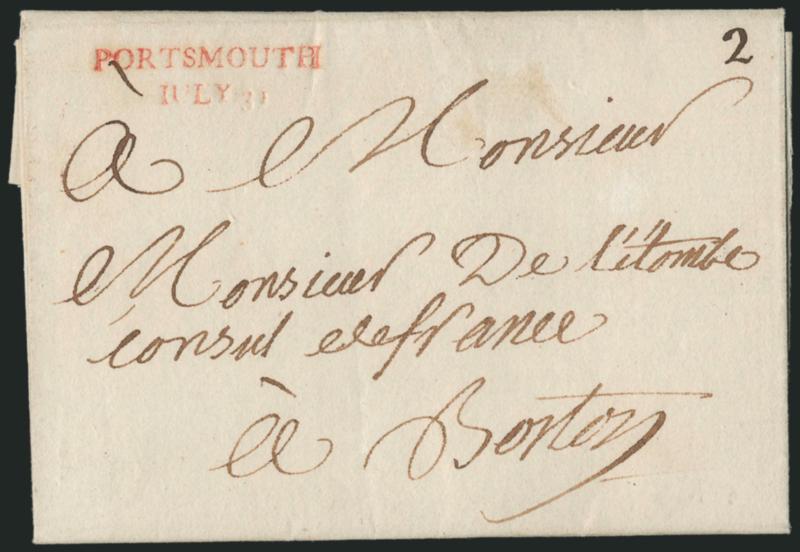 2
PORTSMOUTH
IULY 31
à Monsieur
Monsieur De l'étombe
consul de france
à Boston